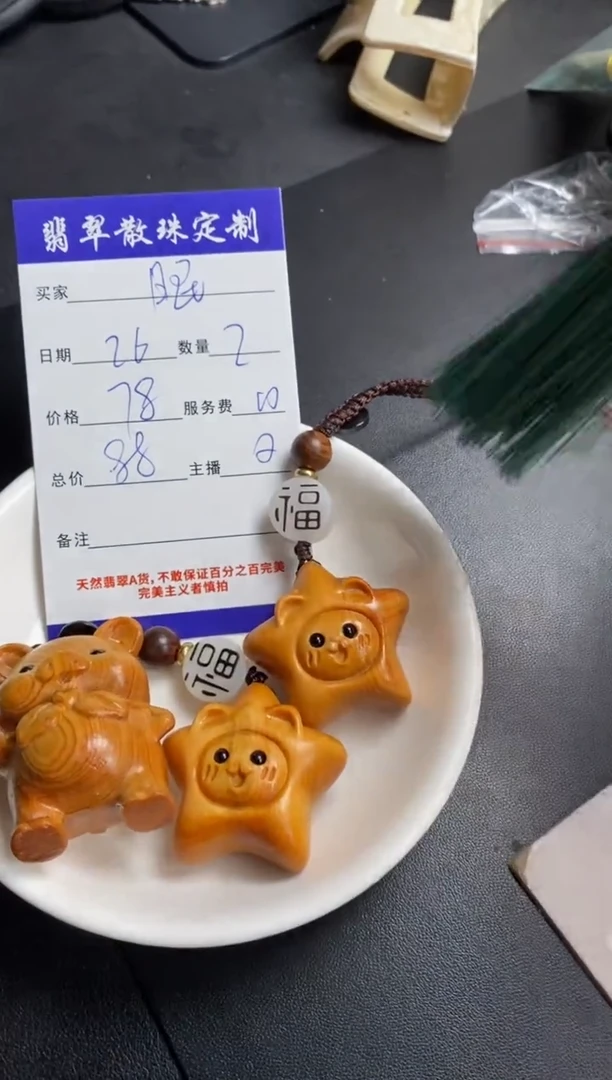 翡翠散珠定制
买家
日期 26 数量 2
价格 78 服务费 10
总价 88 主播 2
备注
天然翡翠A货，不敢保证百分之百完美
完美主义者慎拍
福
福